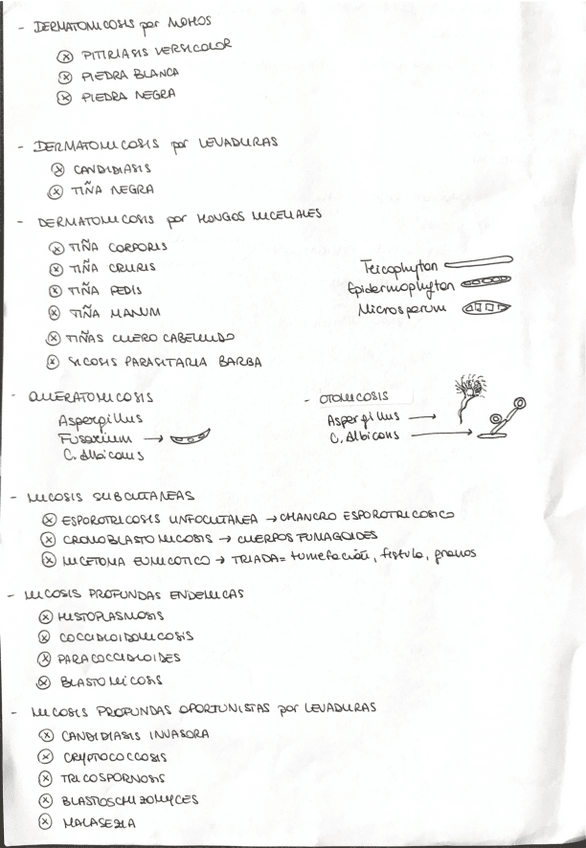 - DERMATOMICOSIS por MOHOS
PITIRIASIS VERSICOLOR
PIEDRA BLANCA
PIEDRA NEGRA
- DERMATOMICOSIS por LEVADURAS
CANDIDIASIS
TIÑA NEGRA
- DERMATOMICOSIS por HONGOS MICELIALES
TIÑA CORPORIS
TIÑA CRURIS
TIÑA PEDIS
TIÑA MANUM
TIÑAS CUERO CABELLUDO
SICOSIS PARASITARIA BARBA
Tricophyton
Epidermophyton
Microsporum
- QUERATOMICOSIS
Aspergillus
Fusarium →
C. Albicans
- OTOMICOSIS
Aspergillus →
C. Albicans →
- MICOSIS SUBCUTANEAS
ESPOROTRICOSIS LINFOCUTANEA → CHANCRO ESPOROTRICOSICO
CROMOBLASTOMICOSIS → CUERPOS FUMAGOIDES
MICETOMA EUMICOTICO → TRIADA = tumefación, fístula, granos
- MICOSIS PROFUNDAS ENDEMICAS
HISTOPLASMOSIS
COCCIDIOIDOMICOSIS
PARACOCCIDIOIDES
BLASTOMICOSIS
- MICOSIS PROFUNDAS OPORTUNISTAS por LEVADURAS
CANDIDIASIS INVASORA
CRYPTOCOCCOSIS
TRICOSPORNOSIS
BLASTOSCHIZOMYCES
MALASEZIA